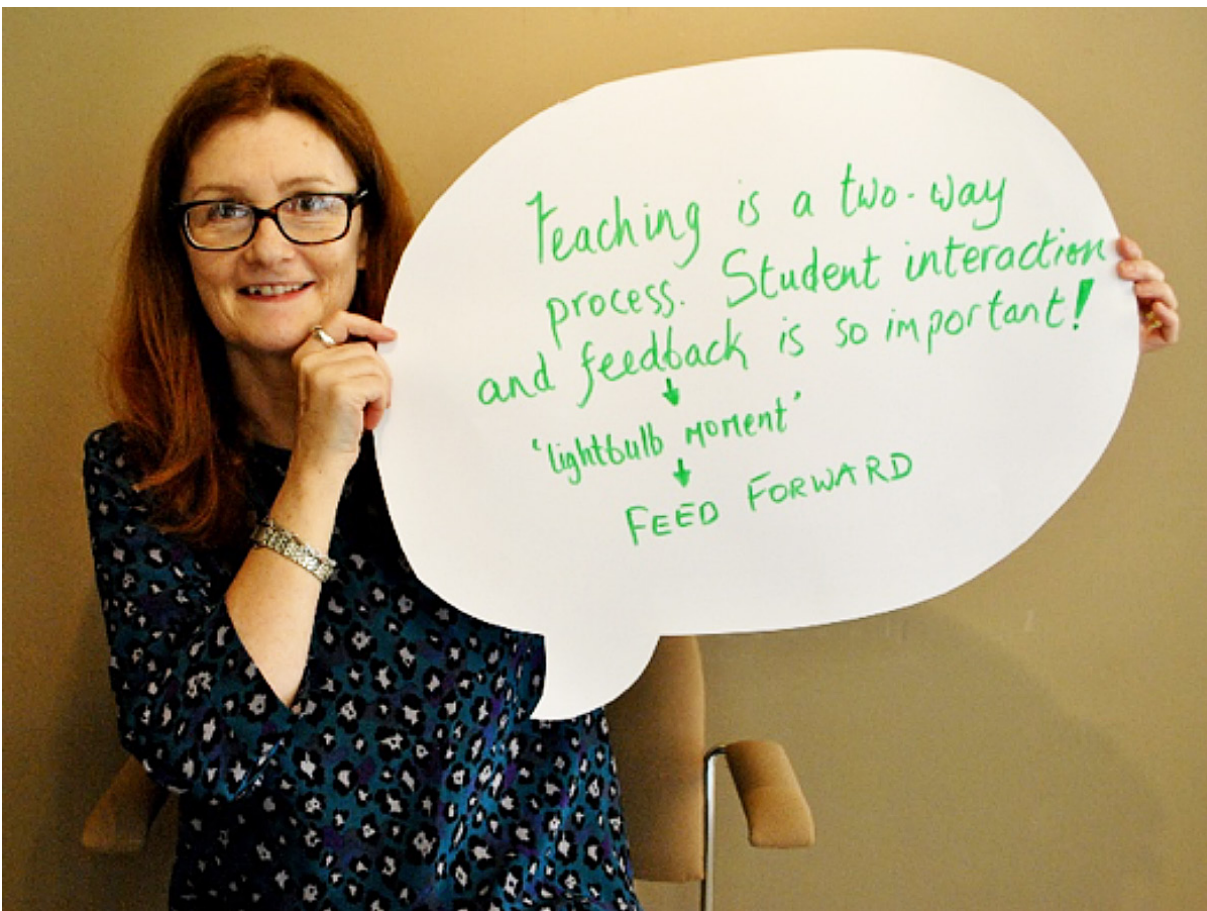 Teaching is a two-way
process. Student interaction
and feedback is so important!
↓
'lightbulb moment'
↓
FEED FORWARD